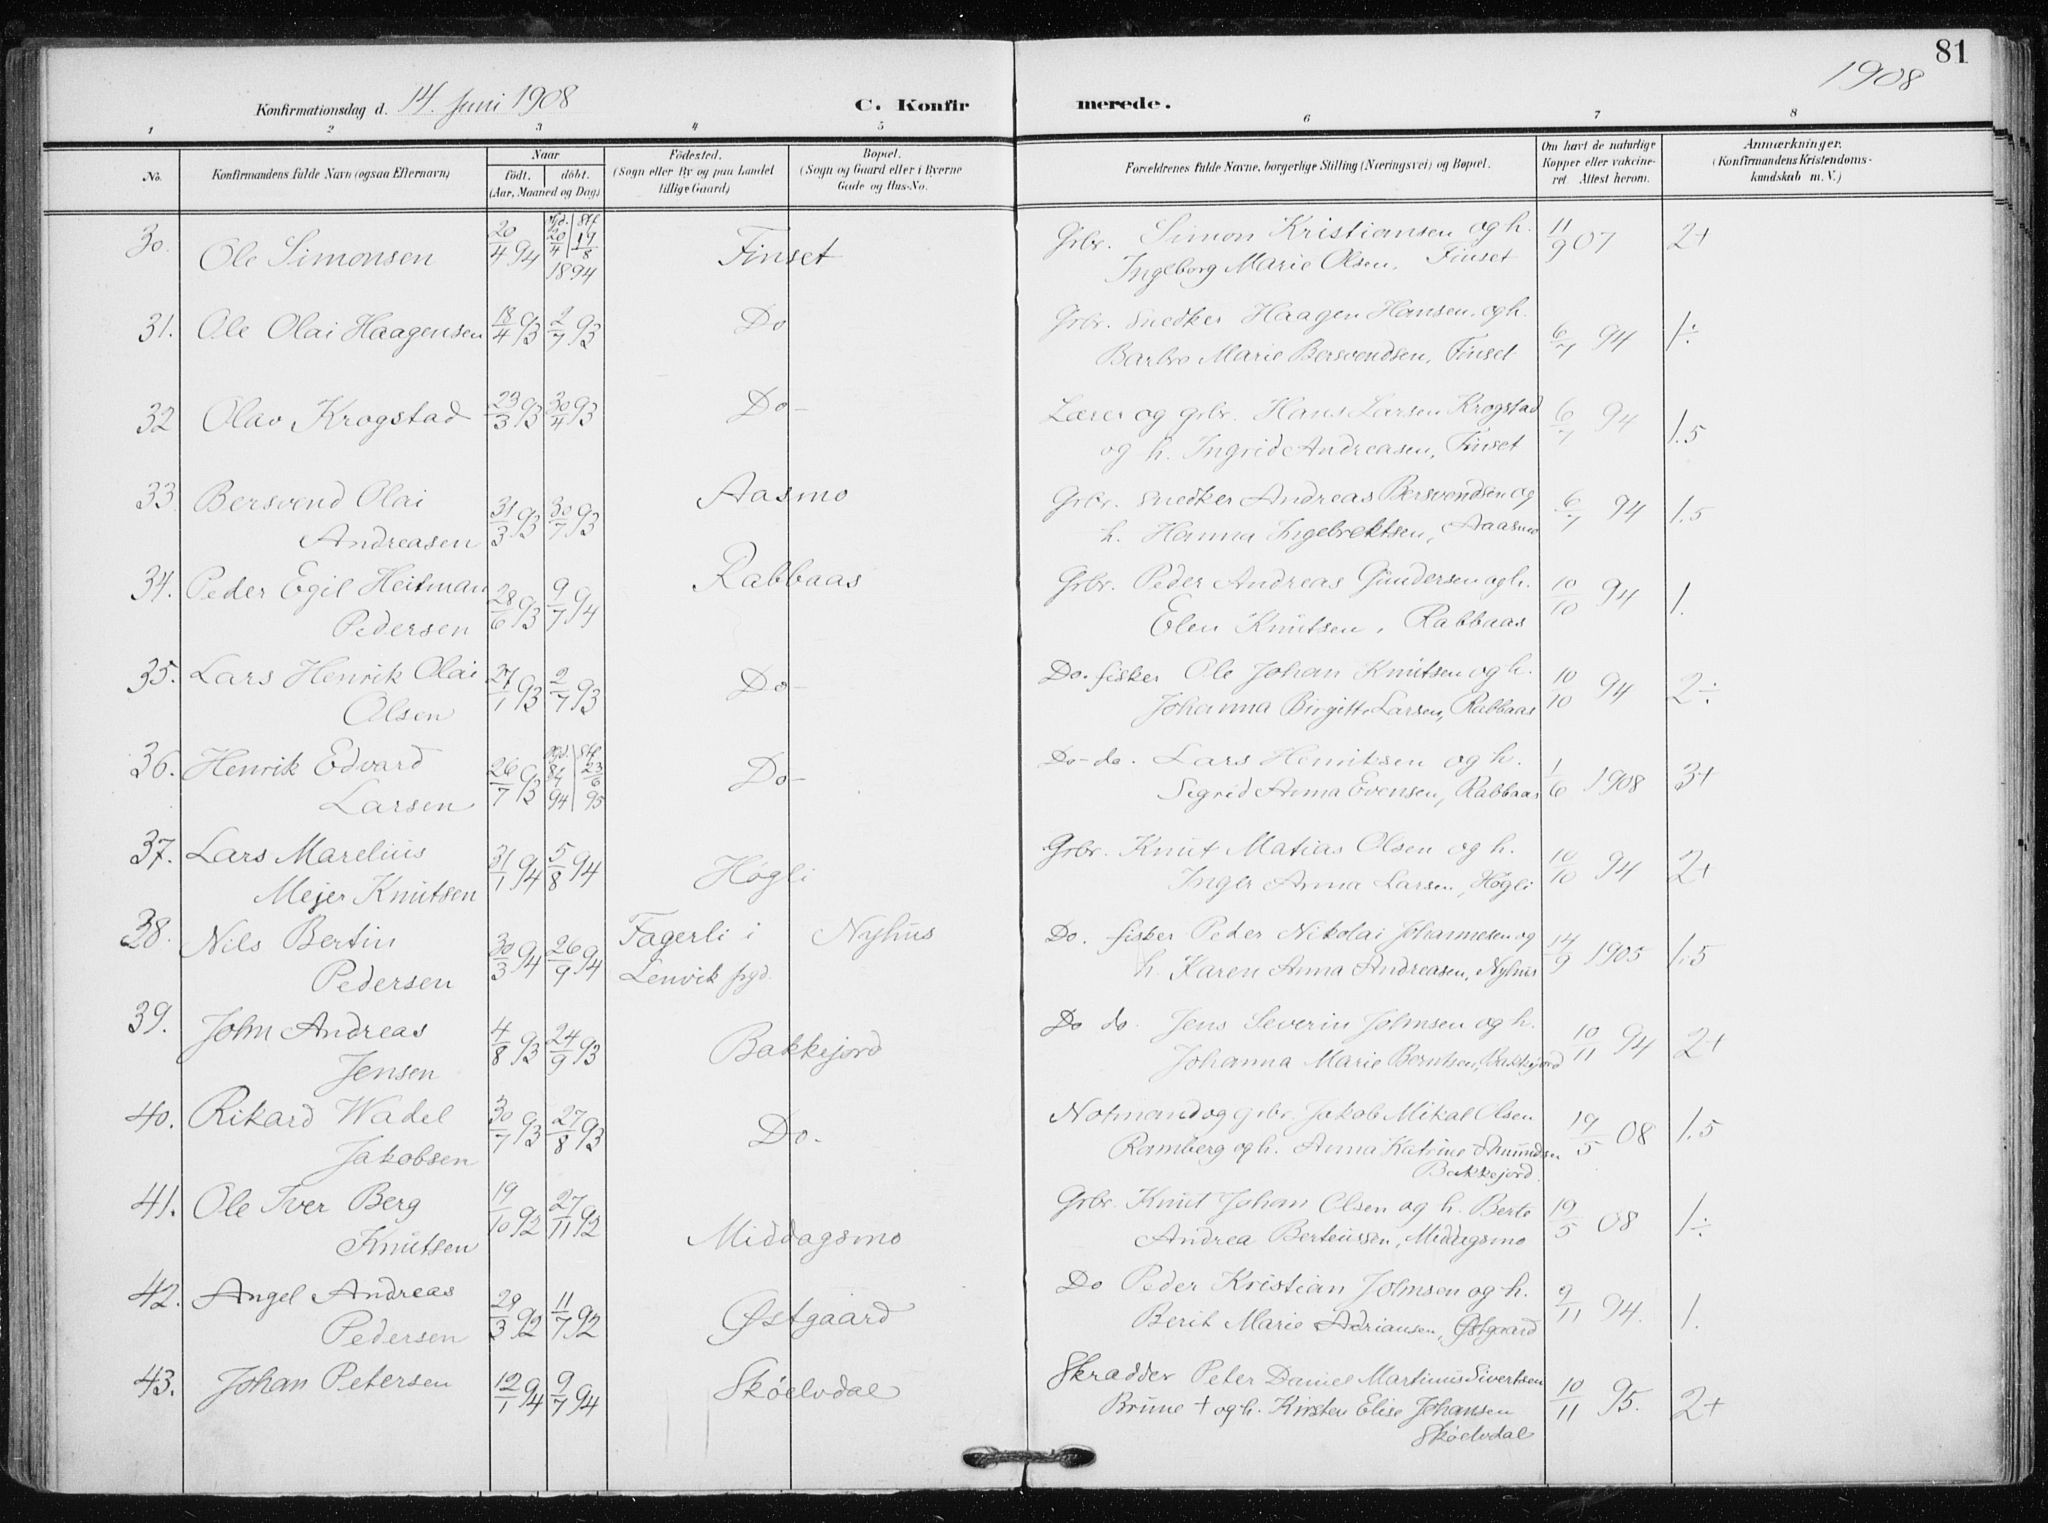 81
1908
Konfirmationsdag d. 14. Juni 1908 C. Konfirmerede.
1 2 3 4 5 6 7 8
No. Konfirmandens fulde Navn (ogsaa Efternavn) Naar født. døbt. (Aar, Maaned og Dag) Fødested. (Sogn eller By og paa Landet tillige Gaard) Bopæl. (Sogn og Gaard eller i Byerne Gade og Hus-No. Forældrenes fulde Navne, borgerlige Stilling (Næringsvei) og Bopæl. Om havt de naturlige Kopper eller vakcineret. Attest herom. Anmærkninger. (Konfirmandens Kristendomskundskab m. V.)
30. Ole Simonsen 20/4 94 hjd. 20/4 | Stf 19/8 1894 Finset Grbr. Simon Kristiansen og h. 11/9 07 2+
Ingeborg Marie Olsen, Finset
31. Ole Olai Haagensen 18/4 93 2/7 93 Do Grbr. Snedker Haagen Hansen. og h. 6/7 94 1÷
Barbro Marie Bersvendsen, Finset
32 Olav Krogstad 23/3 93 30/4 93 Do- Lærer og grbr. Hans Larsen Krogstad 6/7 94 1.5
og h. Ingrid Andreasen, Finset
33 Bersvend Olai 31/3 93 30/7 93 Aasmo Grbr. Snedker Andreas Bersvendsen og 6/7 94 1.5
Andreasen h. Hanna Ingebrektsen, Aaasmo
34. Peder Egil Heitman 28/6 93 9/7 94 Rabbaas Grbr. Peder Andreas Gundersen og h. 10/10 94 1.
Pedersen Elen Knutsen, Rabbaas
35. Lars Henrik Olai 27/1 93 2/7 93 Do- Do. fisker Ole Johan Knutsen og h. 10/10 94 2÷
Olsen Johanna Birgitte Larsen, Rabbaas
36. Henrik Edvard 26/7 93 94 | Stf 23/6 95 Do- Do- do. Lars Henriksen og h. 1/6 1908 3+
Larsen Sigrid Anna Evensen, Rabbaas
37. Lars Marelius 31/1 94 5/8 94 Høgli Grbr. Knut Matias Olsen og h. 10/10 94 2+
Mejer Knutsen Inger Anna Larsen, Høgli
38. Nils Bertin 30/3 94 26/9 94 Fagerli i Nyhus Do. fisker Peder Nikolai Johannesen og 14/9 1905 1.5
Pedersen Lenvik pgd. h. Karen Anna Andreasen, Nyhus
39. John Andreas 4/8 93 24/9 93 Bakkejord Do do. Jens Severin Johnsen og h. 10/11 94 2+
Jensen Johanna Marie Berntsen, Bakkejord
40. Rikard Wadel 30/7 93 27/8 93 Do. Notmand og grbr. Jakob Mikal Olsen 19/5 08 1.5
Jakobsen Ramberg og h. Anna Katrine Amundsen
Bakkejord.
41. Ole Iver Berg 19/10 92 27/11 92 Middagsmo Grbr. Knut Johan Olsen og h. Berte 19/5 08 1÷
Knutsen Andrea Berteussen, Middagsmo
42. Angel Andreas 29/3 92 11/7 92 Østgaard Do Peder Kristian Johnsen og h. 9/11 94. 1.
Pedersen Berit Marie Adriansen, Østgaard
43. Johan Petersen 12/1 94 9/7 94 Skøelvdal Skrædder Peter Daniel Martinus Sivertsen 10/11 95. 2+
Brune + og h. Kirsten Elise Johansen
Skøelvdal